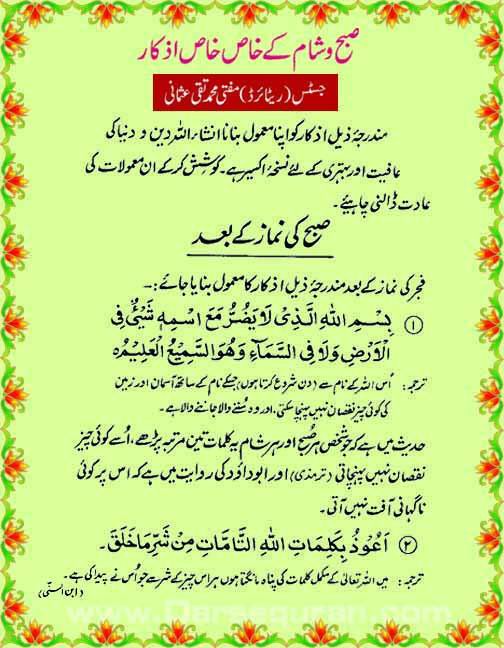 صبح و شام کے خاص خاص اذکار
جسٹس (ریٹائرڈ) مفتی محمد تقی عثمانی
مندرجۂ ذیل اذکار کو اپنا معمول بنانا انشاء اللہ دین و دنیا کی
عافیت اور بہتری کے لئے نسخۂ اکسیر ہے۔ کوشش کرکے ان معمولات کی
عادت ڈالنی چاہیئے۔
صبح کی نماز کے بعد
فجر کی نماز کے بعد مندرجۂ ذیل اذکار کا معمول بنایا جائے:۔
① بِسْمِ اللهِ الَّذِىْ لَا يَضُرُّ مَعَ اسْمِهٖ شَيْئٌ فِى
الْاَرْضِ وَلَا فِى السَّمَآءِ وَهُوَ السَّمِيْعُ الْعَلِيْمُ ہ
ترجمہ : اُس اللہ کے نام سے (دن شروع کرتا ہوں) جسکے نام کے ساتھ آسمان اور زمین
کی کوئی چیز نقصان نہیں پہنچا سکتی، اور وہ سُننے والا جاننے والا ہے۔
حدیث میں ہے کہ جو شخص ہر صُبح اور ہر شام یہ کلمات تین مرتبہ پڑھے، اُسے کوئی چیز
نقصان نہیں پہنچاتی (ترمذی) اور ابوداؤد کی روایت میں ہے کہ اس پر کوئی
ناگہانی آفت نہیں آتی۔
② اَعُوْذُ بِكَلِمَاتِ اللهِ التَّامَّاتِ مِنْ شَرِّ مَا خَلَقَ۔
ترجمہ : میں اللہ تعالیٰ کے مکمل کلمات کی پناہ مانگتا ہوں ہر اس چیز کے شر سے جو اُس نے پیدا کی ہے۔
(ابن السنی)
www.Darsequran.com